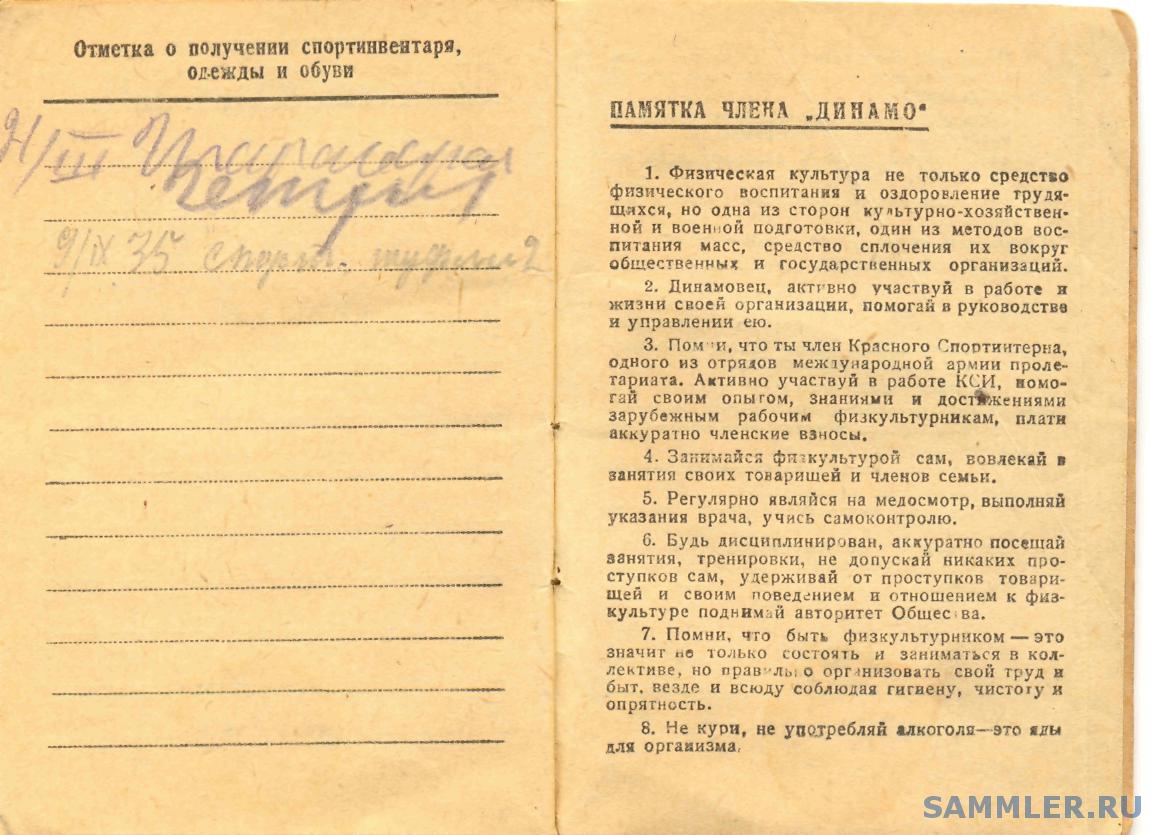 Отметка о получении спортинвентаря,
одежды и обуви
9/IX 35 спорт. туфли 2
ПАМЯТКА ЧЛЕНА „ДИНАМО"
1. Физическая культура не только средство
физического воспитания и оздоровление трудя-
щихся, но одна из сторон культурно-хозяйствен-
ной и военной подготовки, один из методов вос-
питания масс, средство сплочения их вокруг
общественных и государственных организаций.
2. Динамовец, активно участвуй в работе и
жизни своей организации, помогай в руководстве
и управлении ею.
3. Помни, что ты член Красного Спортинтерна,
одного из отрядов международной армии проле-
тариата. Активно участвуй в работе КСИ, помо-
гай своим опытом, знаниями и достижениями
зарубежным рабочим физкультурникам, плати
аккуратно членские взносы.
4. Занимайся физкультурой сам, вовлекай в
занятия своих товарищей и членов семьи.
5. Регулярно являйся на медосмотр, выполняй
указания врача, учись самоконтролю.
6. Будь дисциплинирован, аккуратно посещай
занятия, тренировки, не допускай никаких про-
ступков сам, удерживай от проступков товари-
щей и своим поведением и отношением к физ-
культуре поднимай авторитет Общества.
7. Помни, что быть физкультурником — это
значит не только состоять и заниматься в кол-
лективе, но правильно организовать свой труд и
быт, везде и всюду соблюдая гигиену, чистоту и
опрятность.
8. Не кури, не употребляй алкоголя—это яды
для организма.
SAMMLER.RU